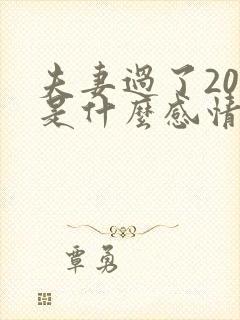 夫妻過了20
是什麼感情
覃勇